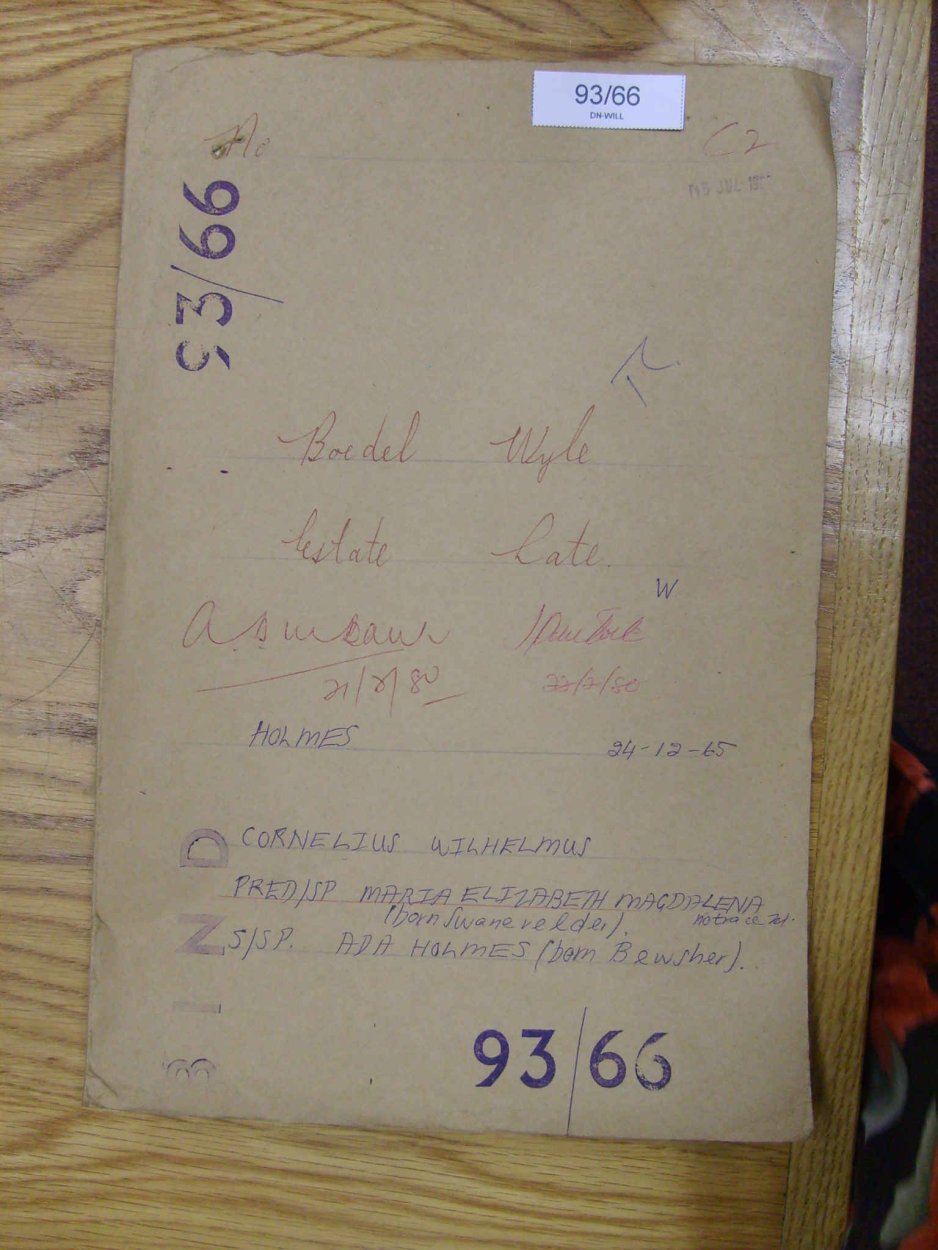 93/66
DN-WILL
No
C2
JUL
93/66
Boedel Wyle
Estate Late
W
21/7/80
22/7/80
HOLMES 24-12-65
CORNELIUS WILHELMUS
PRED/SP MARIA ELIZABETH MAGDALENA
(born Swanevelder). no trace
S/SP. ADA HOLMES (born Bewsher).
BIND
93/66